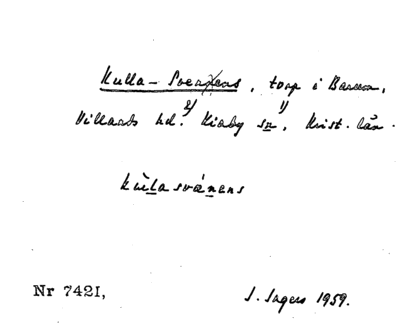 Kulla-Svenens, torp i Barum,
Villands hd. 2) Kiaby sn 1), Krist. län.
kùlasvánens
Nr 7421, J. Sagers 1959.